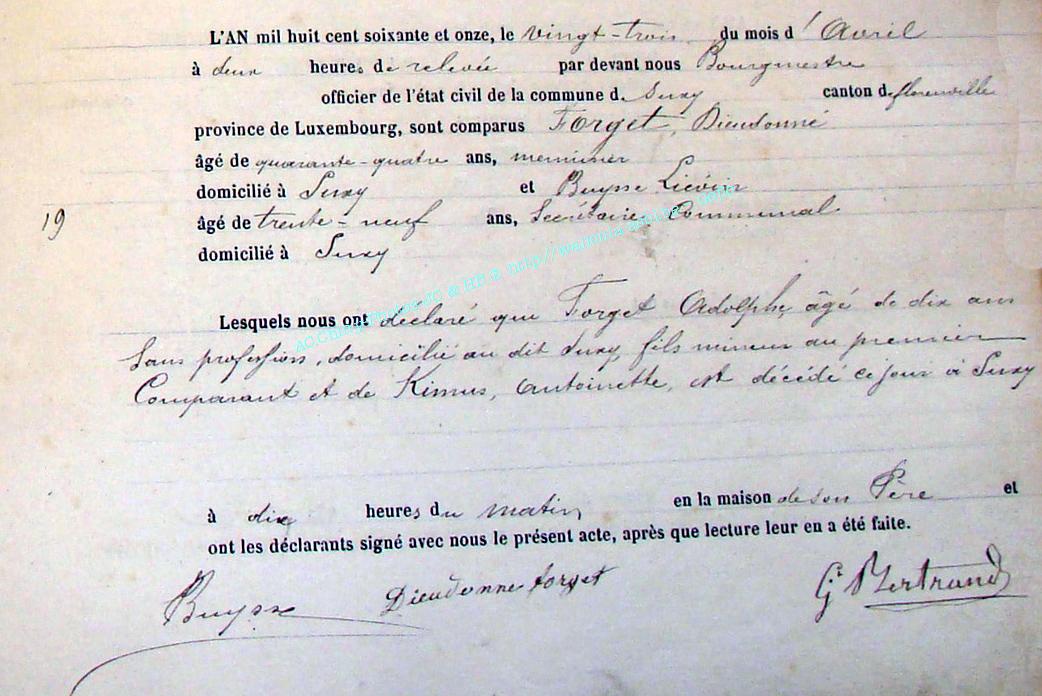 L'AN mil huit cent soixante et onze, le vingt-trois du mois d'Avril
à deux heures de relevée par devant nous Bourgmestre
officier de l'état civil de la commune de Suxy canton de florenville
province de Luxembourg, sont comparus Forget, Dieudonné
âgé de quarante-quatre ans, menuisier
domicilié à Suxy et Buysse Liévin
19
âgé de trente-neuf ans, Secrétaire Communal
domicilié à Suxy
Lesquels nous ont déclaré que Forget Adolphe, âgé de dix ans
Sans profession, domicilié au dit Suxy, fils mineur au premier
Comparant et de Kimus, Antoinette, est décédé ce jour à Suxy
à dix heures du matin, en la maison de son Père et
ont les déclarants signé avec nous le présent acte, après que lecture leur en a été faite.
Buysse Dieudonne forget G Bertrand